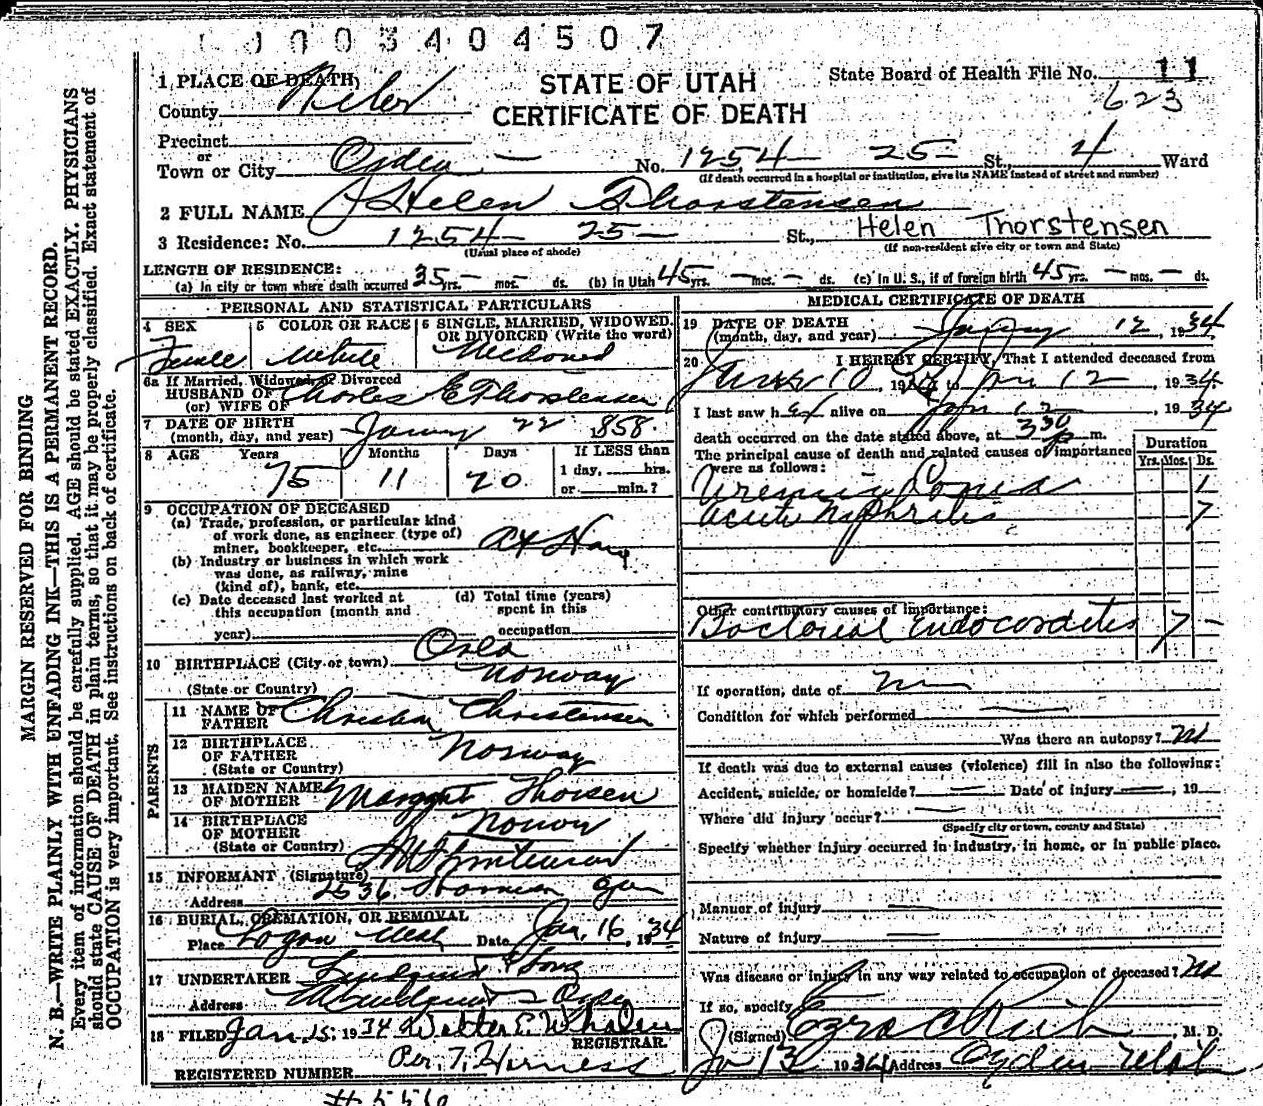 0003404507
MARGIN RESERVED FOR BINDING
N. B.—WRITE PLAINLY WITH UNFADING INK—THIS IS A PERMANENT RECORD.
Every item of information should be carefully supplied. AGE should be stated EXACTLY. PHYSICIANS
should state CAUSE OF DEATH in plain terms, so that it may be properly classified. Exact statement of
OCCUPATION is very important. See instructions on back of certificate.
STATE OF UTAH
CERTIFICATE OF DEATH
State Board of Health File No. 11
623
1 PLACE OF DEATH
County Weber
Precinct
or
Town or City Ogden No. 1254 25 St., 4 Ward
(If death occurred in a hospital or institution, give its NAME instead of street and number)
2 FULL NAME Helen Thorstensen
3 Residence: No. 1254 25 St., Helen Thorstensen
(Usual place of abode) (If non-resident give city or town and State)
LENGTH OF RESIDENCE:
(a) In city or town where death occurred 35 yrs. — mos. — ds. (b) in Utah 45 yrs. — mos. — ds. (c) in U. S., if of foreign birth 45 yrs. — mos. — ds.
PERSONAL AND STATISTICAL PARTICULARS
4 SEX Female
5 COLOR OR RACE White
6 SINGLE, MARRIED, WIDOWED, OR DIVORCED (Write the word) Widowed
6a If Married, Widowed, or Divorced
HUSBAND OF
(or) WIFE OF Charles E Thorstensen
7 DATE OF BIRTH
(month, day, and year) January 22 1858
8 AGE Years 75 Months 11 Days 20 If LESS than
1 day, hrs.
or min.?
9 OCCUPATION OF DECEASED
(a) Trade, profession, or particular kind
of work done, as engineer (type of)
miner, bookkeeper, etc. at Home
(b) Industry or business in which work
was done, as railway, mine
(kind of), bank, etc.
(c) Date deceased last worked at
this occupation (month and
year)
(d) Total time (years)
spent in this
occupation
10 BIRTHPLACE (City or town) Oslo
(State or Country) Norway
PARENTS
11 NAME OF
FATHER Christian Christensen
12 BIRTHPLACE
OF FATHER
(State or Country) Norway
13 MAIDEN NAME
OF MOTHER Margget Thorsen
14 BIRTHPLACE
OF MOTHER
(State or Country) Norway
15 INFORMANT (Signature)
Address 2536
16 BURIAL, CREMATION, OR REMOVAL
Place Logan Utah Date Jan. 16, 1934
17 UNDERTAKER Lindquist & Sons
Address Lindquist
18 FILED Jan. 15, 1934 Walter E. Whalen
REGISTRAR.
Per. T. Harness
REGISTERED NUMBER
#556
MEDICAL CERTIFICATE OF DEATH
19 DATE OF DEATH
(month, day, and year) January 12, 1934
20 I HEREBY CERTIFY, That I attended deceased from
10, 19 to Jan 12, 1934
I last saw her alive on Jan 12, 1934
death occurred on the date stated above, at 330 p m.
The principal cause of death and related causes of importance
were as follows:
Duration
Yrs. Mos. Ds.
Uremic Coma 1
acute Nephritis 7
Other contributory causes of importance:
Bacterial endocarditis 7 —
If operation, date of
Condition for which performed
Was there an autopsy? no
If death was due to external causes (violence) fill in also the following:
Accident, suicide, or homicide? — Date of injury —, 19
Where did injury occur? —
(Specify city or town, county and State)
Specify whether injury occurred in industry, in home, or in public place.
Manner of injury —
Nature of injury —
Was disease or injury in any way related to occupation of deceased? no
If so, specify
(Signed) Ezra C Rich, M. D.
Jan 13 1934 Address Ogden Utah